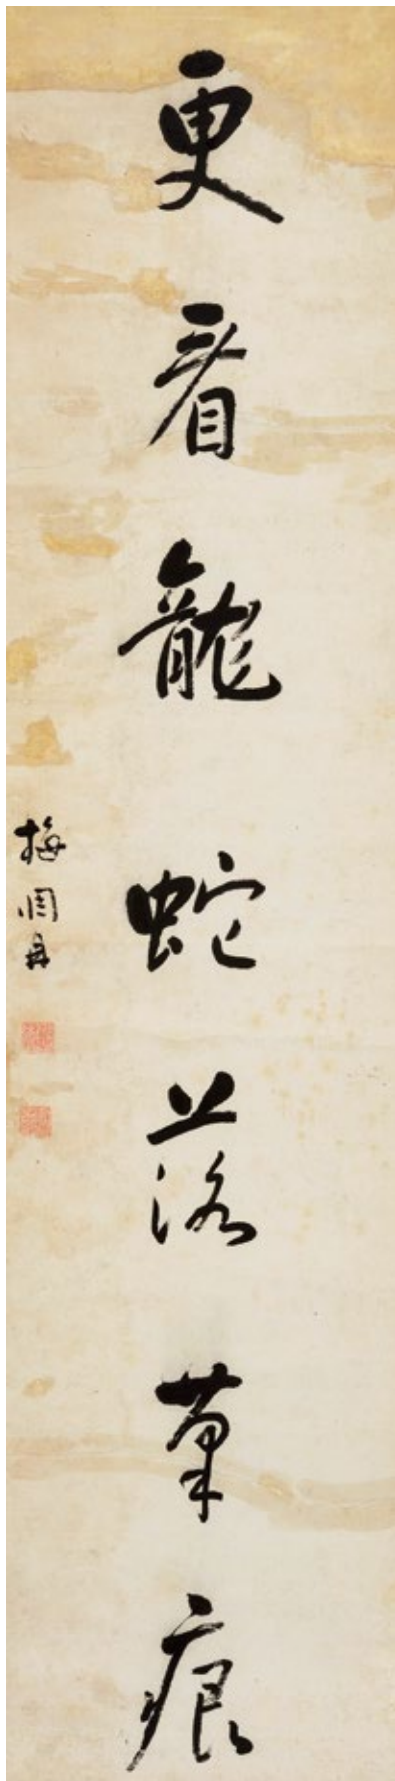 更看龍蛇落筆痕
梅調鼎